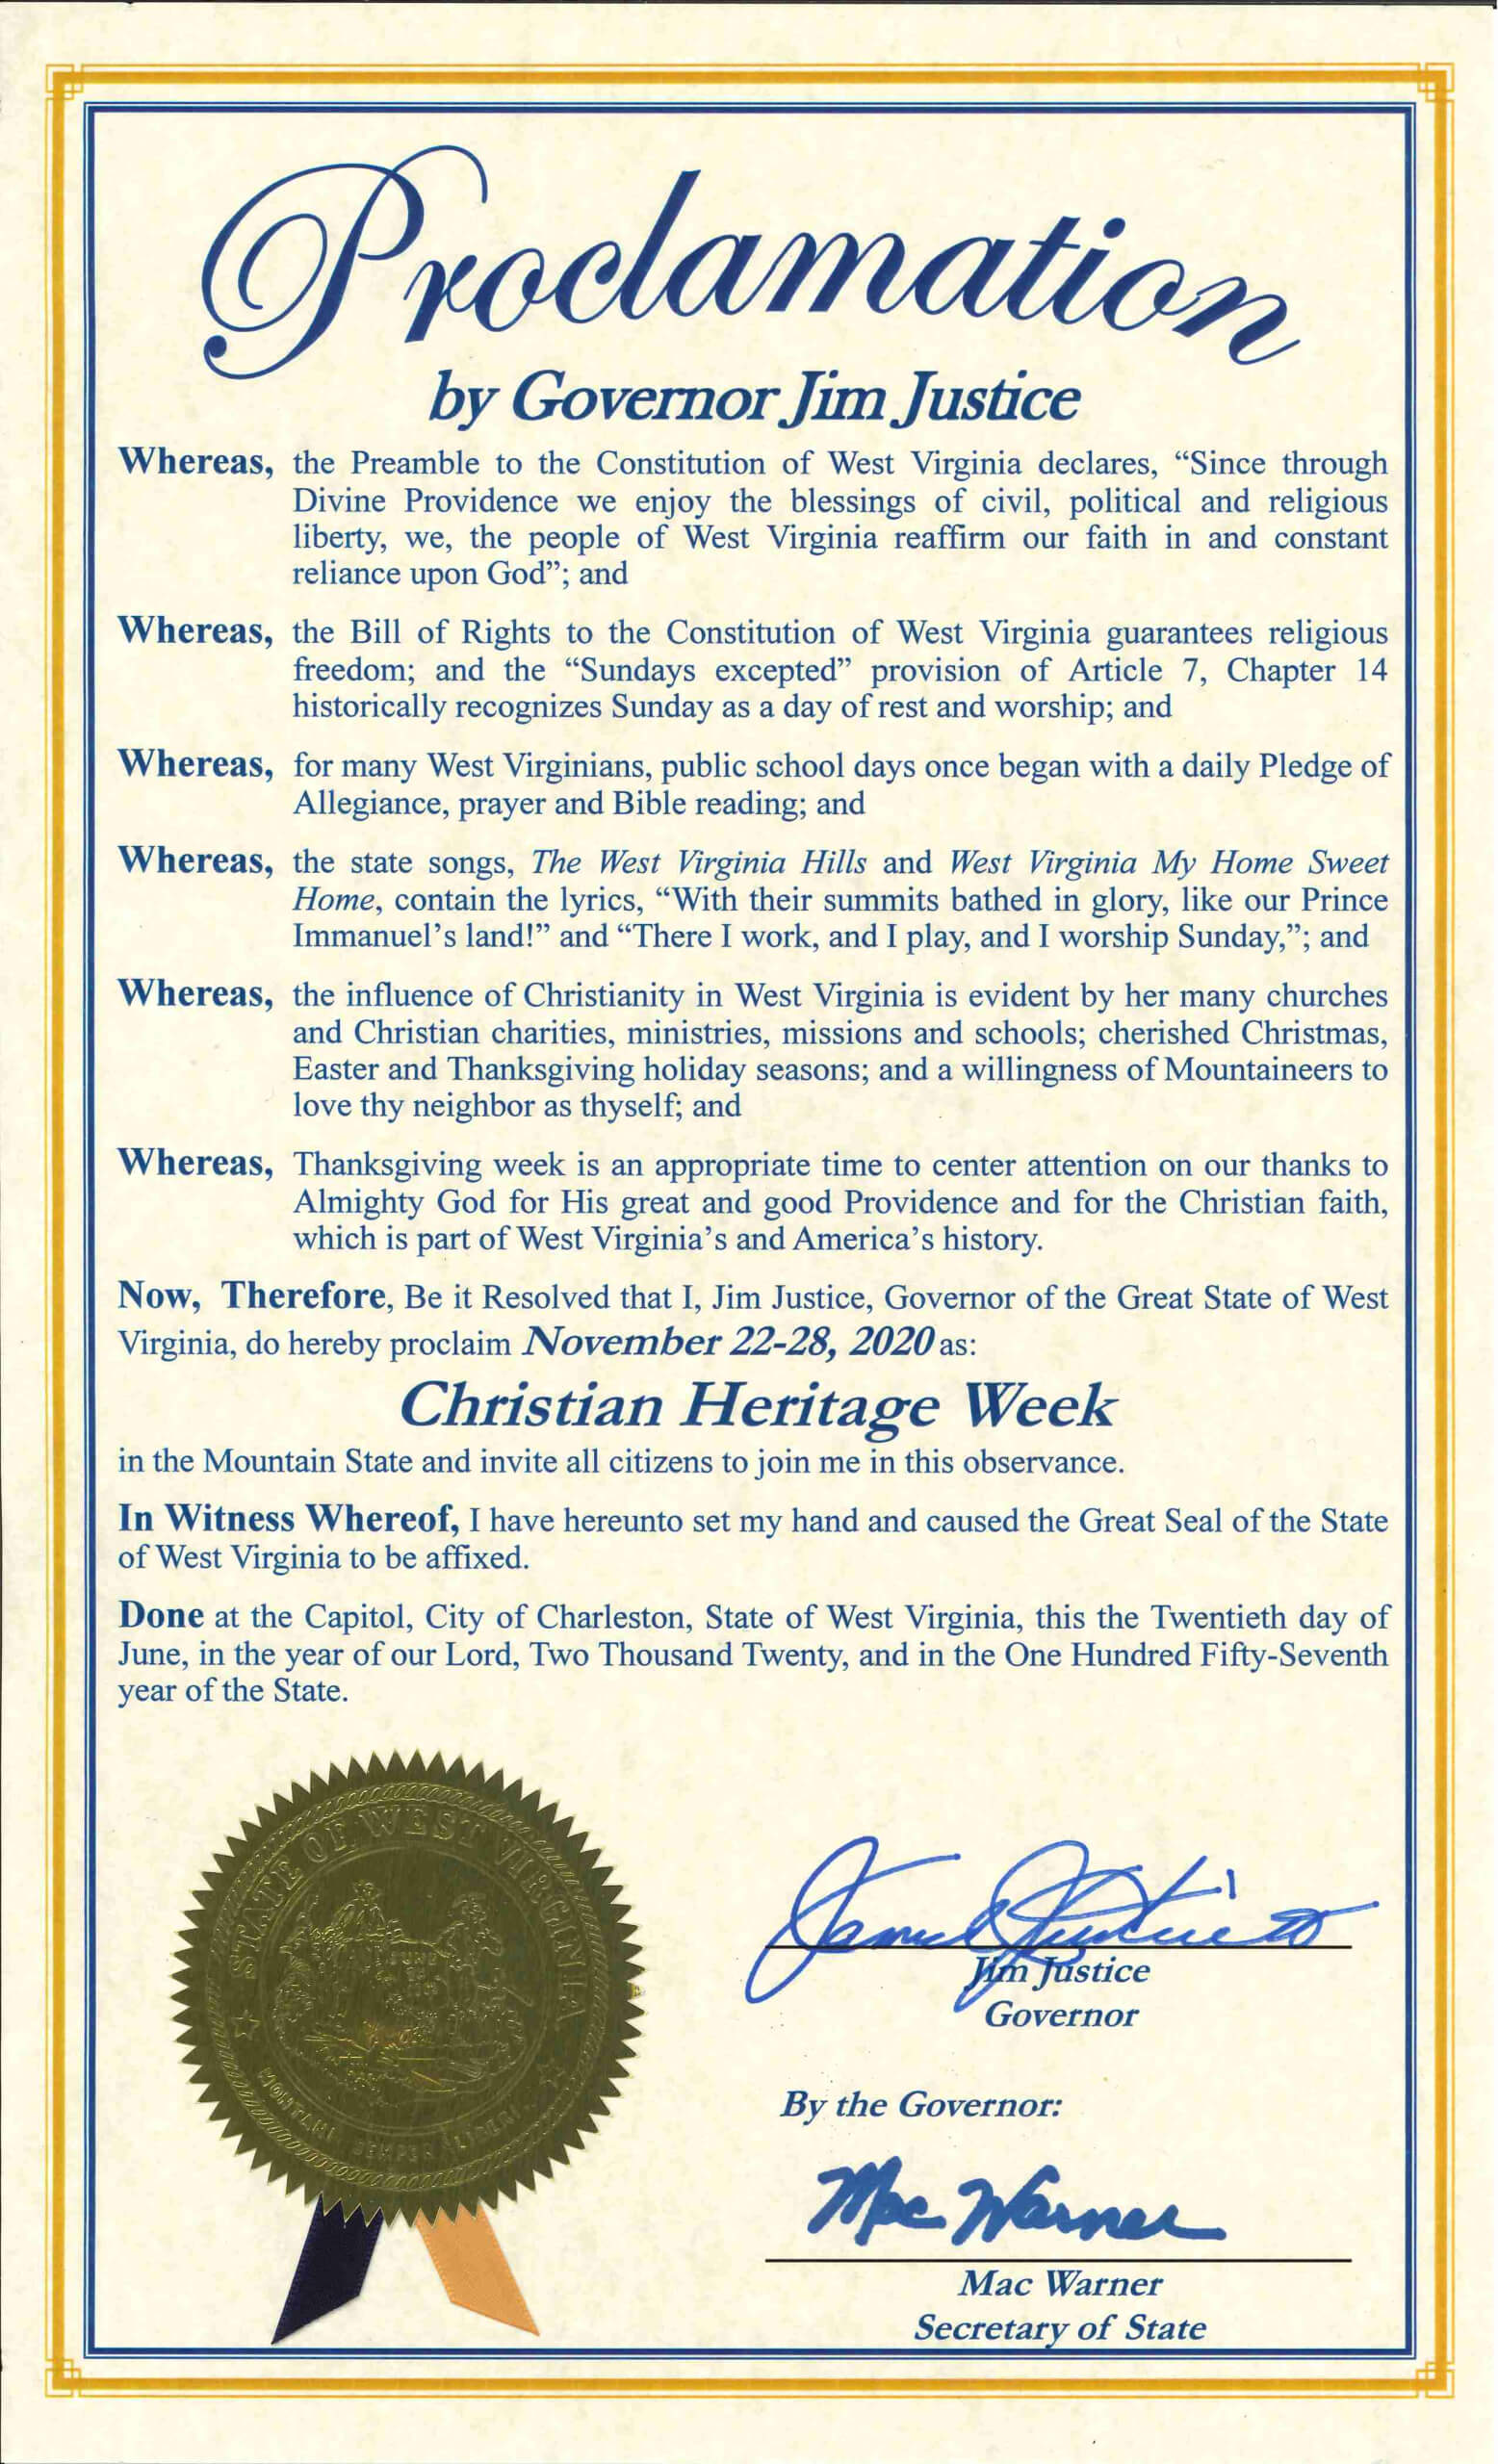 Proclamation
by Governor Jim Justice
Whereas, the Preamble to the Constitution of West Virginia declares, “Since through
Divine Providence we enjoy the blessings of civil, political and religious
liberty, we, the people of West Virginia reaffirm our faith in and constant
reliance upon God”; and
Whereas, the Bill of Rights to the Constitution of West Virginia guarantees religious
freedom; and the “Sundays excepted” provision of Article 7, Chapter 14
historically recognizes Sunday as a day of rest and worship; and
Whereas, for many West Virginians, public school days once began with a daily Pledge of
Allegiance, prayer and Bible reading; and
Whereas, the state songs, The West Virginia Hills and West Virginia My Home Sweet
Home, contain the lyrics, “With their summits bathed in glory, like our Prince
Immanuel’s land!” and “There I work, and I play, and I worship Sunday,”; and
Whereas, the influence of Christianity in West Virginia is evident by her many churches
and Christian charities, ministries, missions and schools; cherished Christmas,
Easter and Thanksgiving holiday seasons; and a willingness of Mountaineers to
love thy neighbor as thyself; and
Whereas, Thanksgiving week is an appropriate time to center attention on our thanks to
Almighty God for His great and good Providence and for the Christian faith,
which is part of West Virginia’s and America’s history.
Now, Therefore, Be it Resolved that I, Jim Justice, Governor of the Great State of West
Virginia, do hereby proclaim November 22-28, 2020 as:
Christian Heritage Week
in the Mountain State and invite all citizens to join me in this observance.
In Witness Whereof, I have hereunto set my hand and caused the Great Seal of the State
of West Virginia to be affixed.
Done at the Capitol, City of Charleston, State of West Virginia, this the Twentieth day of
June, in the year of our Lord, Two Thousand Twenty, and in the One Hundred Fifty-Seventh
year of the State.
STATE OF WEST VIRGINIA
MONTANI SEMPER LIBERI
Jim Justice
Governor
By the Governor:
Mac Warner
Mac Warner
Secretary of State